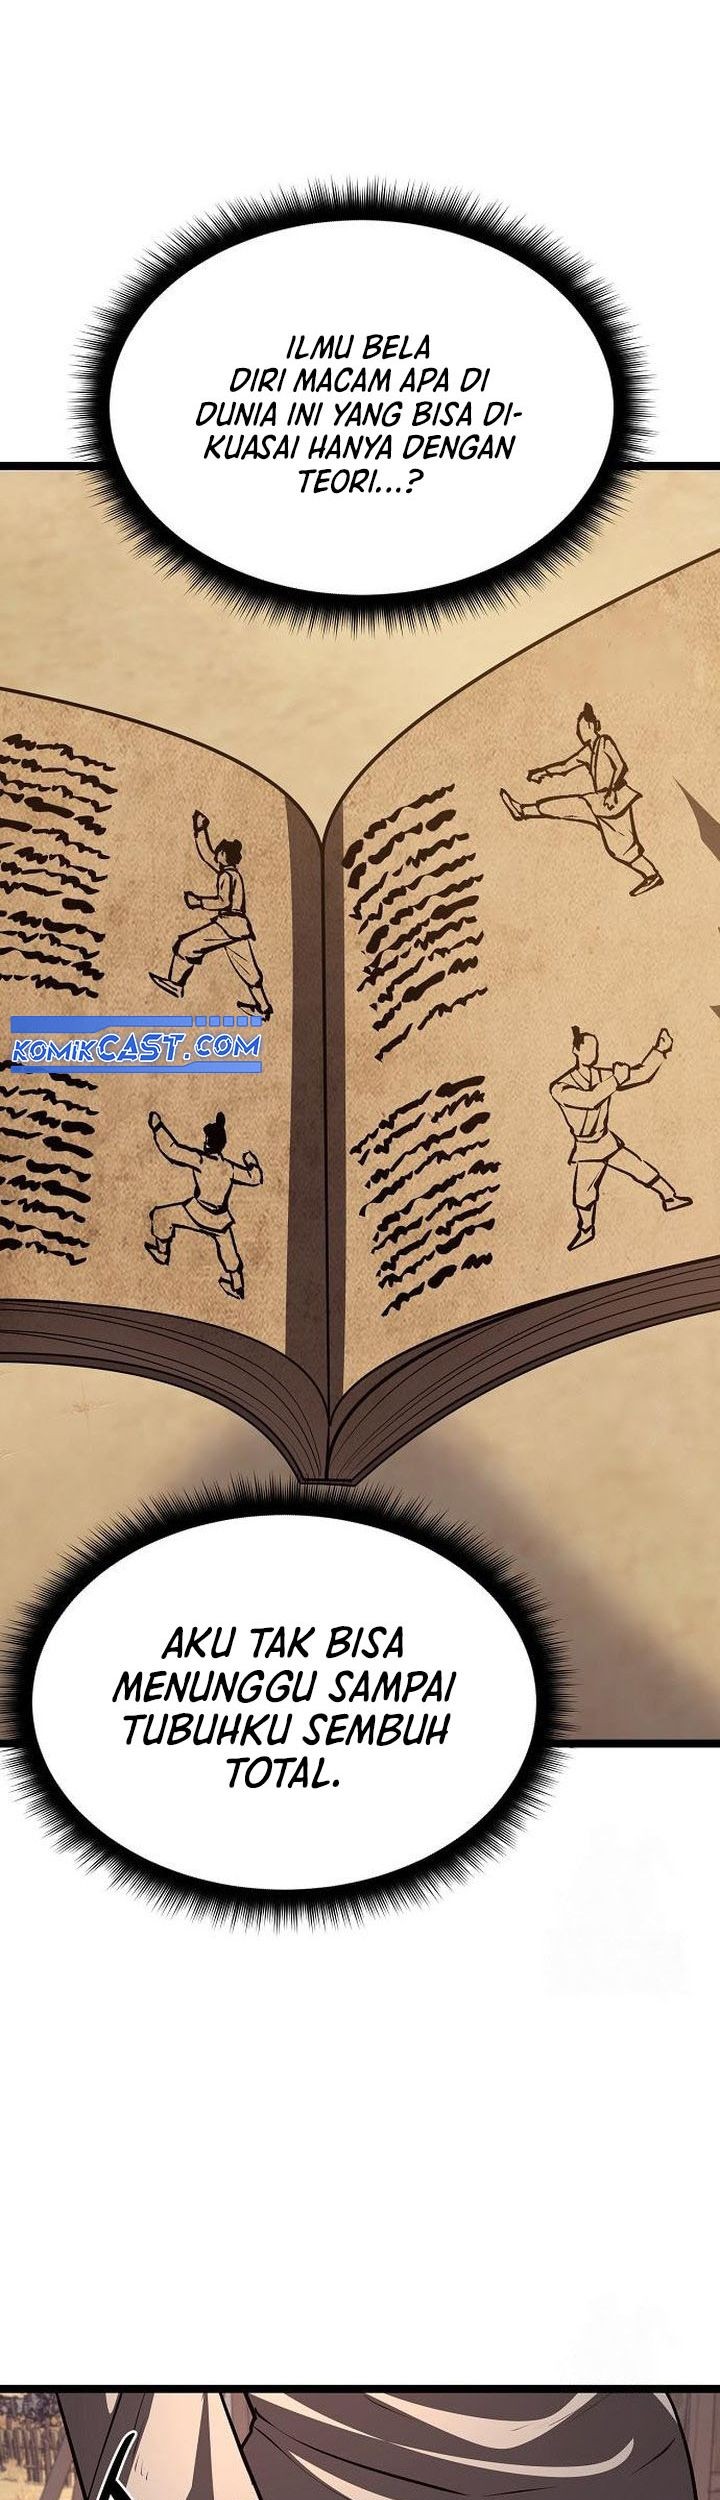 ILMU BELA
DIRI MACAM APA DI
DUNIA INI YANG BISA DI-
KUASAI HANYA DENGAN
TEORI...?
KOMIKCAST.COM
AKU TAK BISA
MENUNGGU SAMPAI
TUBUHKU SEMBUH
TOTAL.